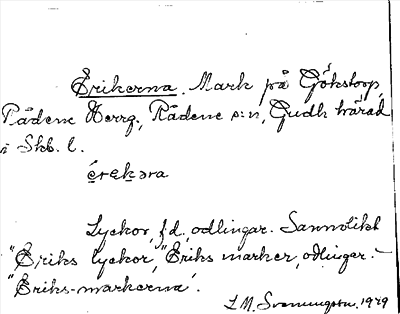 Erikerna. Mark på Gökstorp,
Rådene Herrg., Rådene s:n, Gudh. härad
i Skb. l.
érekəra
Lyckor, f.d. odlingar. Sannolikt
"Eriks lyckor", "Eriks marker, odlingar. –
"Eriks-markerna".
L M. Svenungsson. 1929